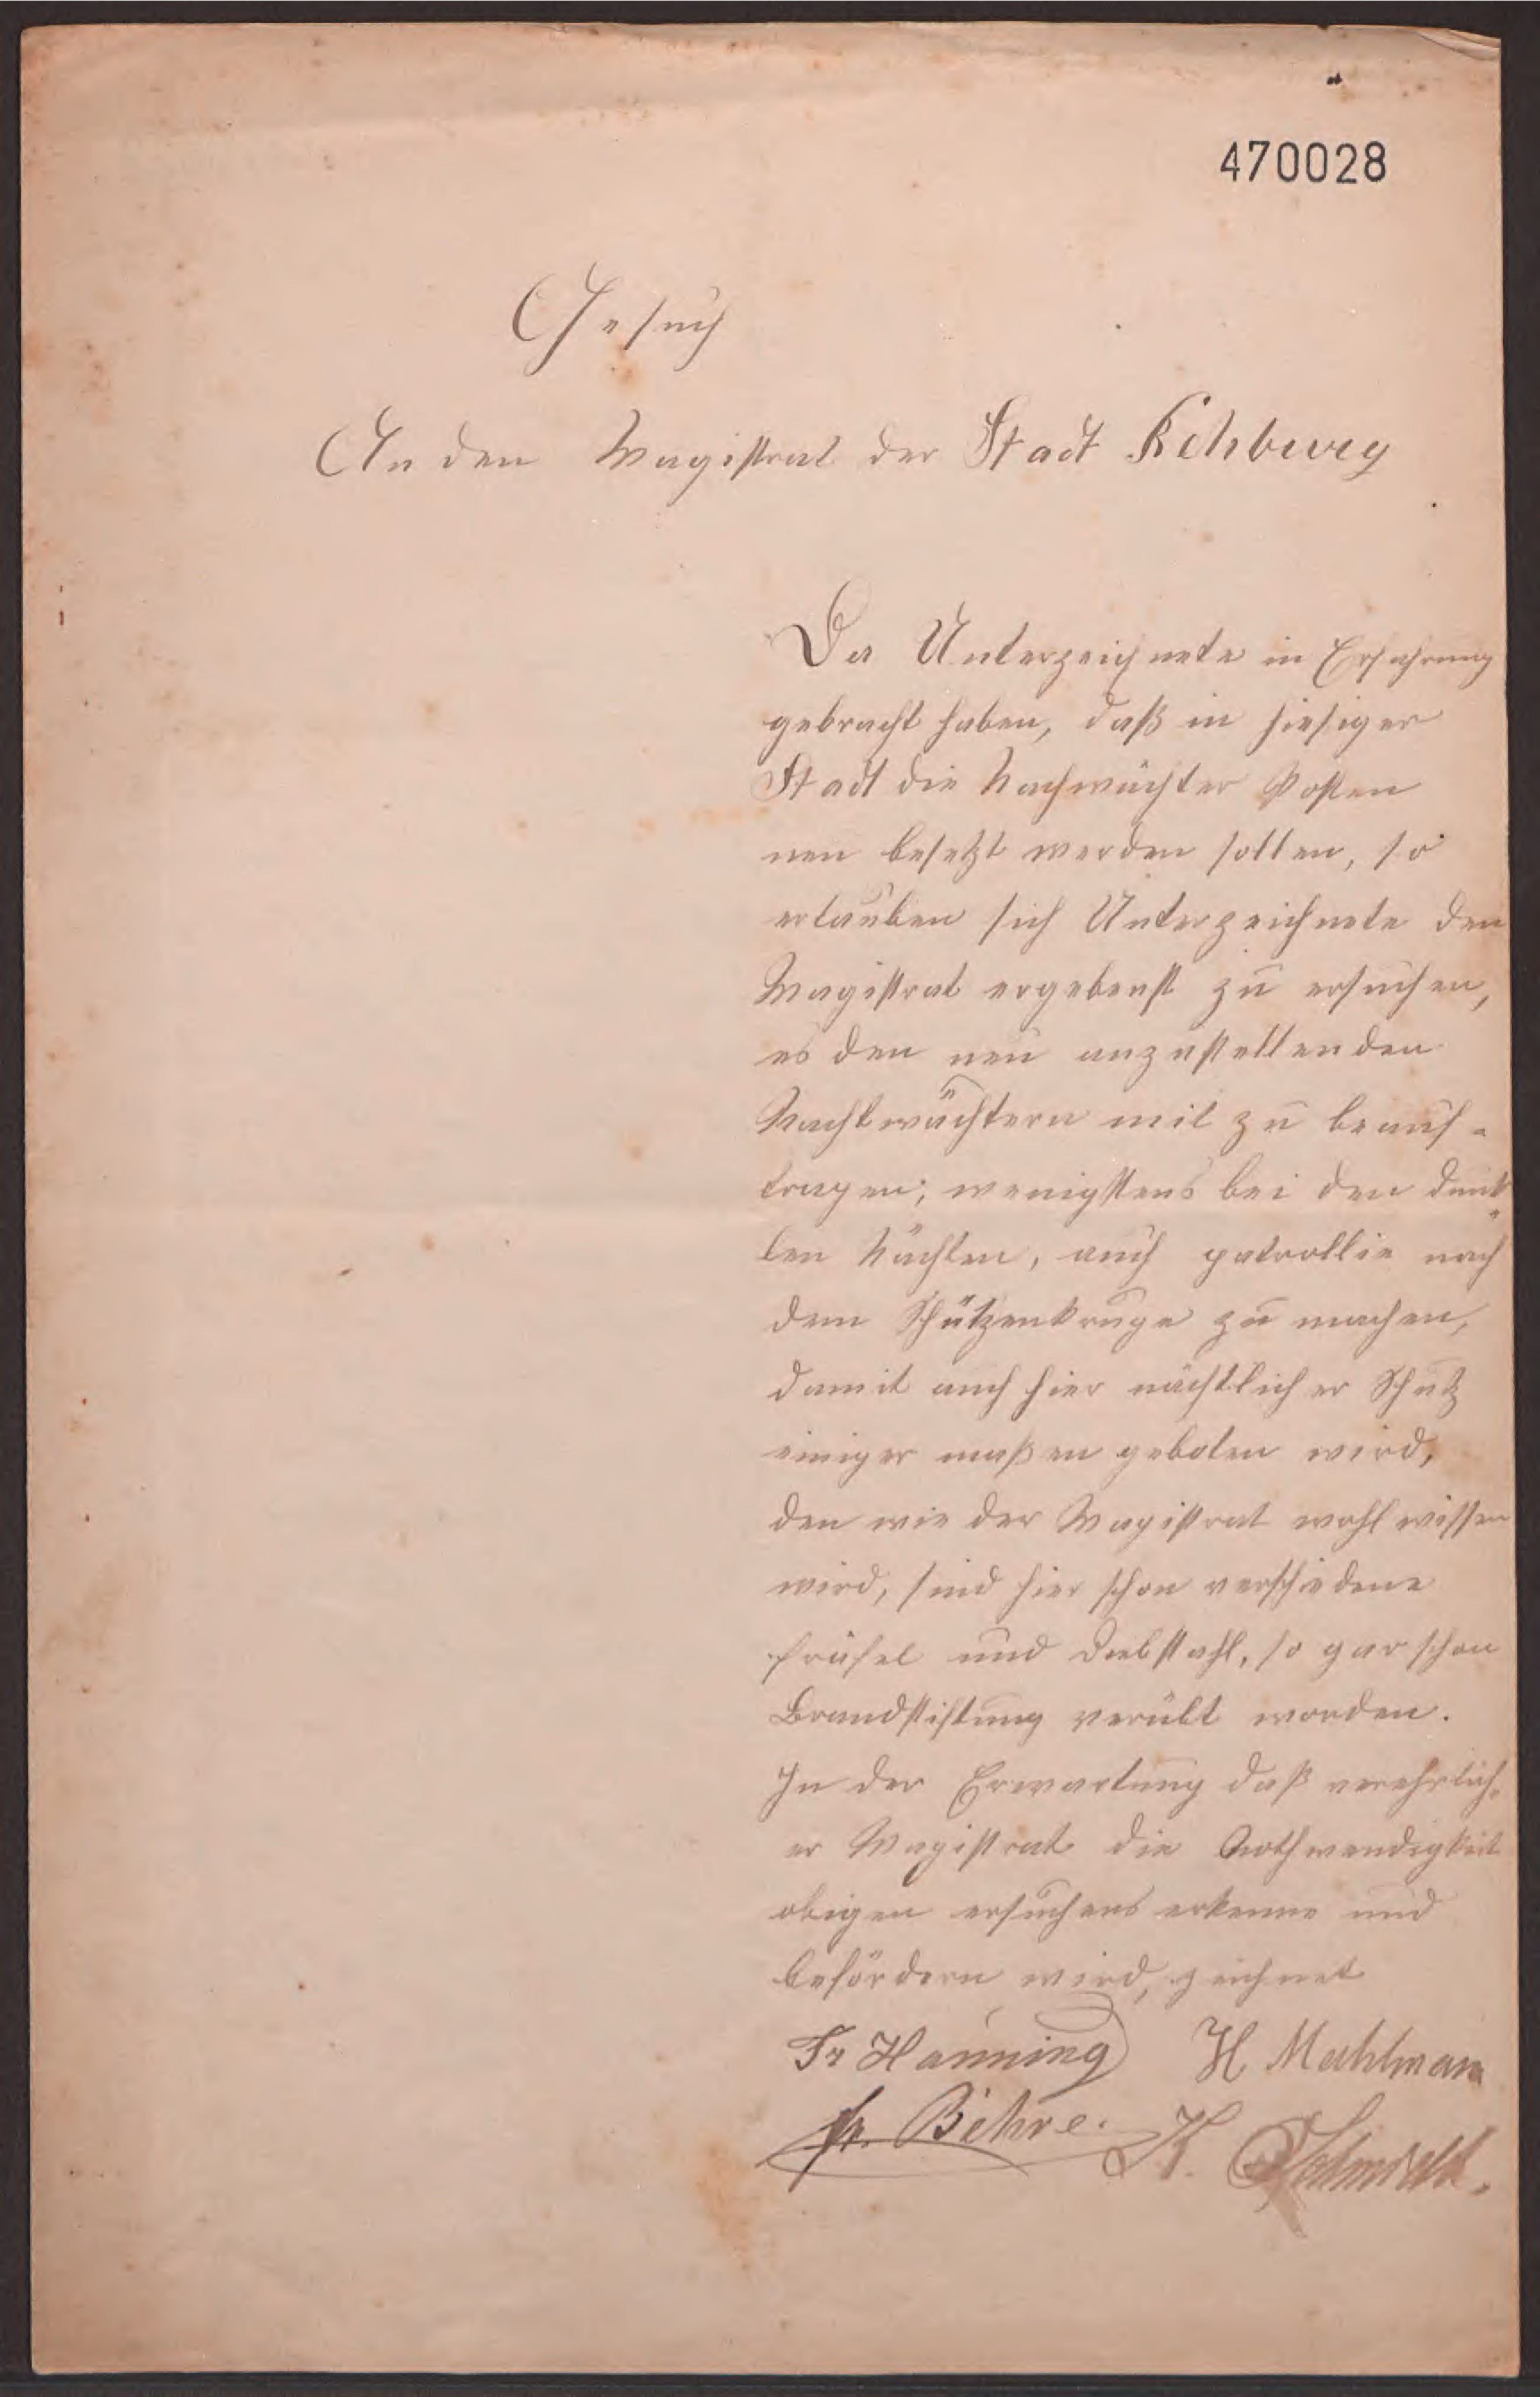 470028
Gesuch
An den Magistrat der Stadt Rehburg
Da Unterzeichnete in Erfahrung
gebracht haben, daß in hiesiger
Stadt die Nachwächter Posten
neu besetzt werden sollen, so
erlauben sich Unterzeichnete den
Magistrat ergebenst zu ersuchen,
es den neu anzustellenden
Nachtwächtern mit zu beauf-
tragen; wenigstens bei den dunk-
len Nächten, auch patrollie nach
dem Schützenkruge zu machen,
damit auch hier nächtlicher Schutz
einiger maßen geboten wird,
den wie der Magistrat wohl wissen
wird, sind hier schon verschiedene
fräfel und Diebstahl, so gar schon
Brandstiftung verübt worden.
In der Erwartung daß verehrlich-
er Magistrat die Nothwendigkeit
obigen ersuchens erkenne und
befördern wird, zeichnet
Fr Hanning H Mahlmann
Fr. Behre. K. Schmidt.